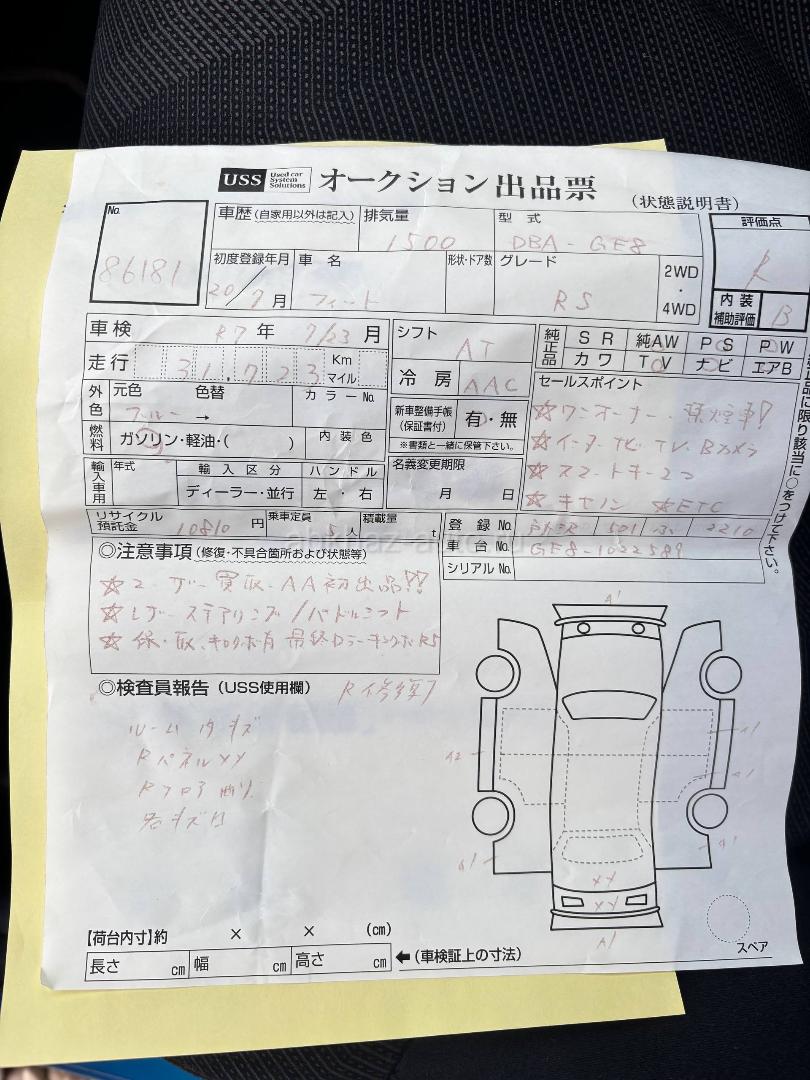 USS Used car System Solutions オークション出品票 (状態説明書)
No. 86181
車歴(自家用以外は記入) 排気量 1500 型式 DBA-GE8 評価点 R
初度登録年月 20/7月 車名 フィット 形状・ドア数 グレード RS 2WD・4WD 内装補助評価 B
車検 R7年 7/23月 シフト AT 純正品 SR 純AW PS PW
カワ TV ナビ エアB
走行 31,723 Km マイル 冷房 AAC セールスポイント
外色 元色 ブルー → 色替 カラーNo. 新車整備手帳(保証書付) 有・無 ☆ワンオーナー・禁煙車!
※書類と一緒に保管下さい。 ☆インターナビ TV Bカメラ
燃料 ガソリン・軽油・( ) 内装色 名義変更期限 月 日 ☆スマートキー2コ
輸入車用 年式 輸入区分 ディーラー・並行 ハンドル 左・右 ☆キセノン ☆ETC
品に限り該当に○をつけて下さい。
リサイクル預託金 10810円 乗車定員 5人 積載量 t 登録No. 501 2210
車台No. GE8-1022589
シリアルNo.
◎注意事項(修復・不具合箇所および状態等)
☆ユーザー買取・AA初出品!!
☆レザーステアリング/パドルシフト
☆保・取、キロク簿有
◎検査員報告(USS使用欄) R修復
ルーム内キズ
RパネルXX
Rフロア曲り
A1
A2
A1
A1
A1
A1
XX
XX
A1
スペア
【荷台内寸】約 × × (cm)
長さ cm 幅 cm 高さ cm ←(車検証上の寸法)
abkhaz-auto.ru